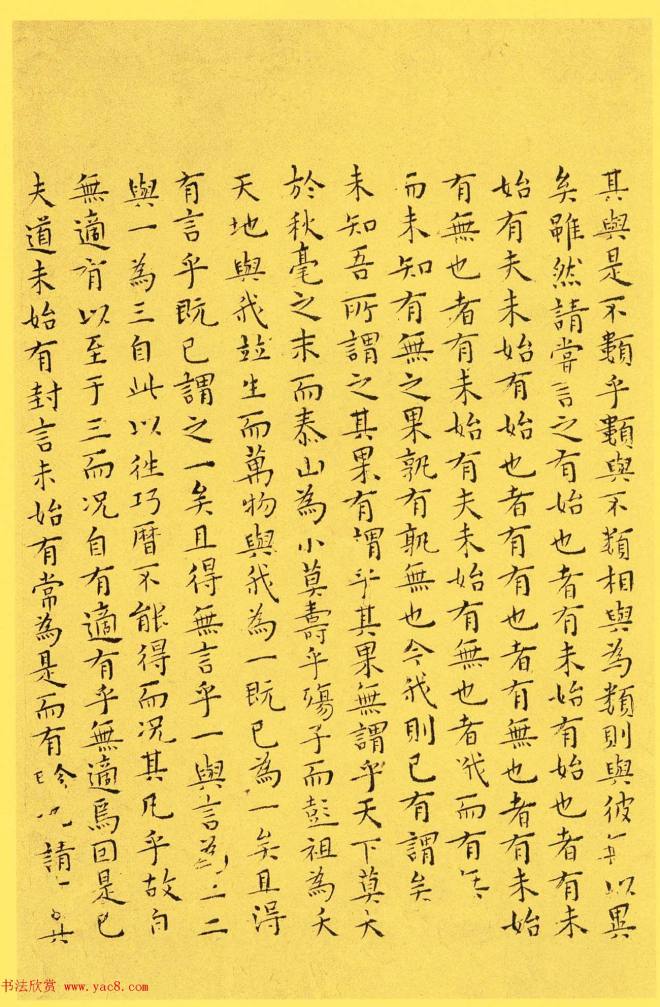 其與是不類乎類與不類相與為類則與彼無以異
矣雖然請嘗言之有始也者有未始有始也者有未
始有夫未始有始也者有有也者有無也者有未始
有無也者有未始有夫未始有無也者俄而有無
而未知有無之果孰有孰無也今我則已有謂矣
未知吾所謂之其果有謂乎其果無謂乎天下莫大
於秋毫之末而泰山為小莫壽乎殤子而彭祖為夭
天地與我竝生而萬物與我為一既已為一矣且得
有言乎既已謂之一矣且得無言乎一與言為二二
與一為三自此以往巧曆不能得而况其凡乎故自
無適有以至于三而况自有適有乎無適焉因是已
夫道未始有封言未始有常為是而有畛也請其
书法欣赏 www.yac8.com